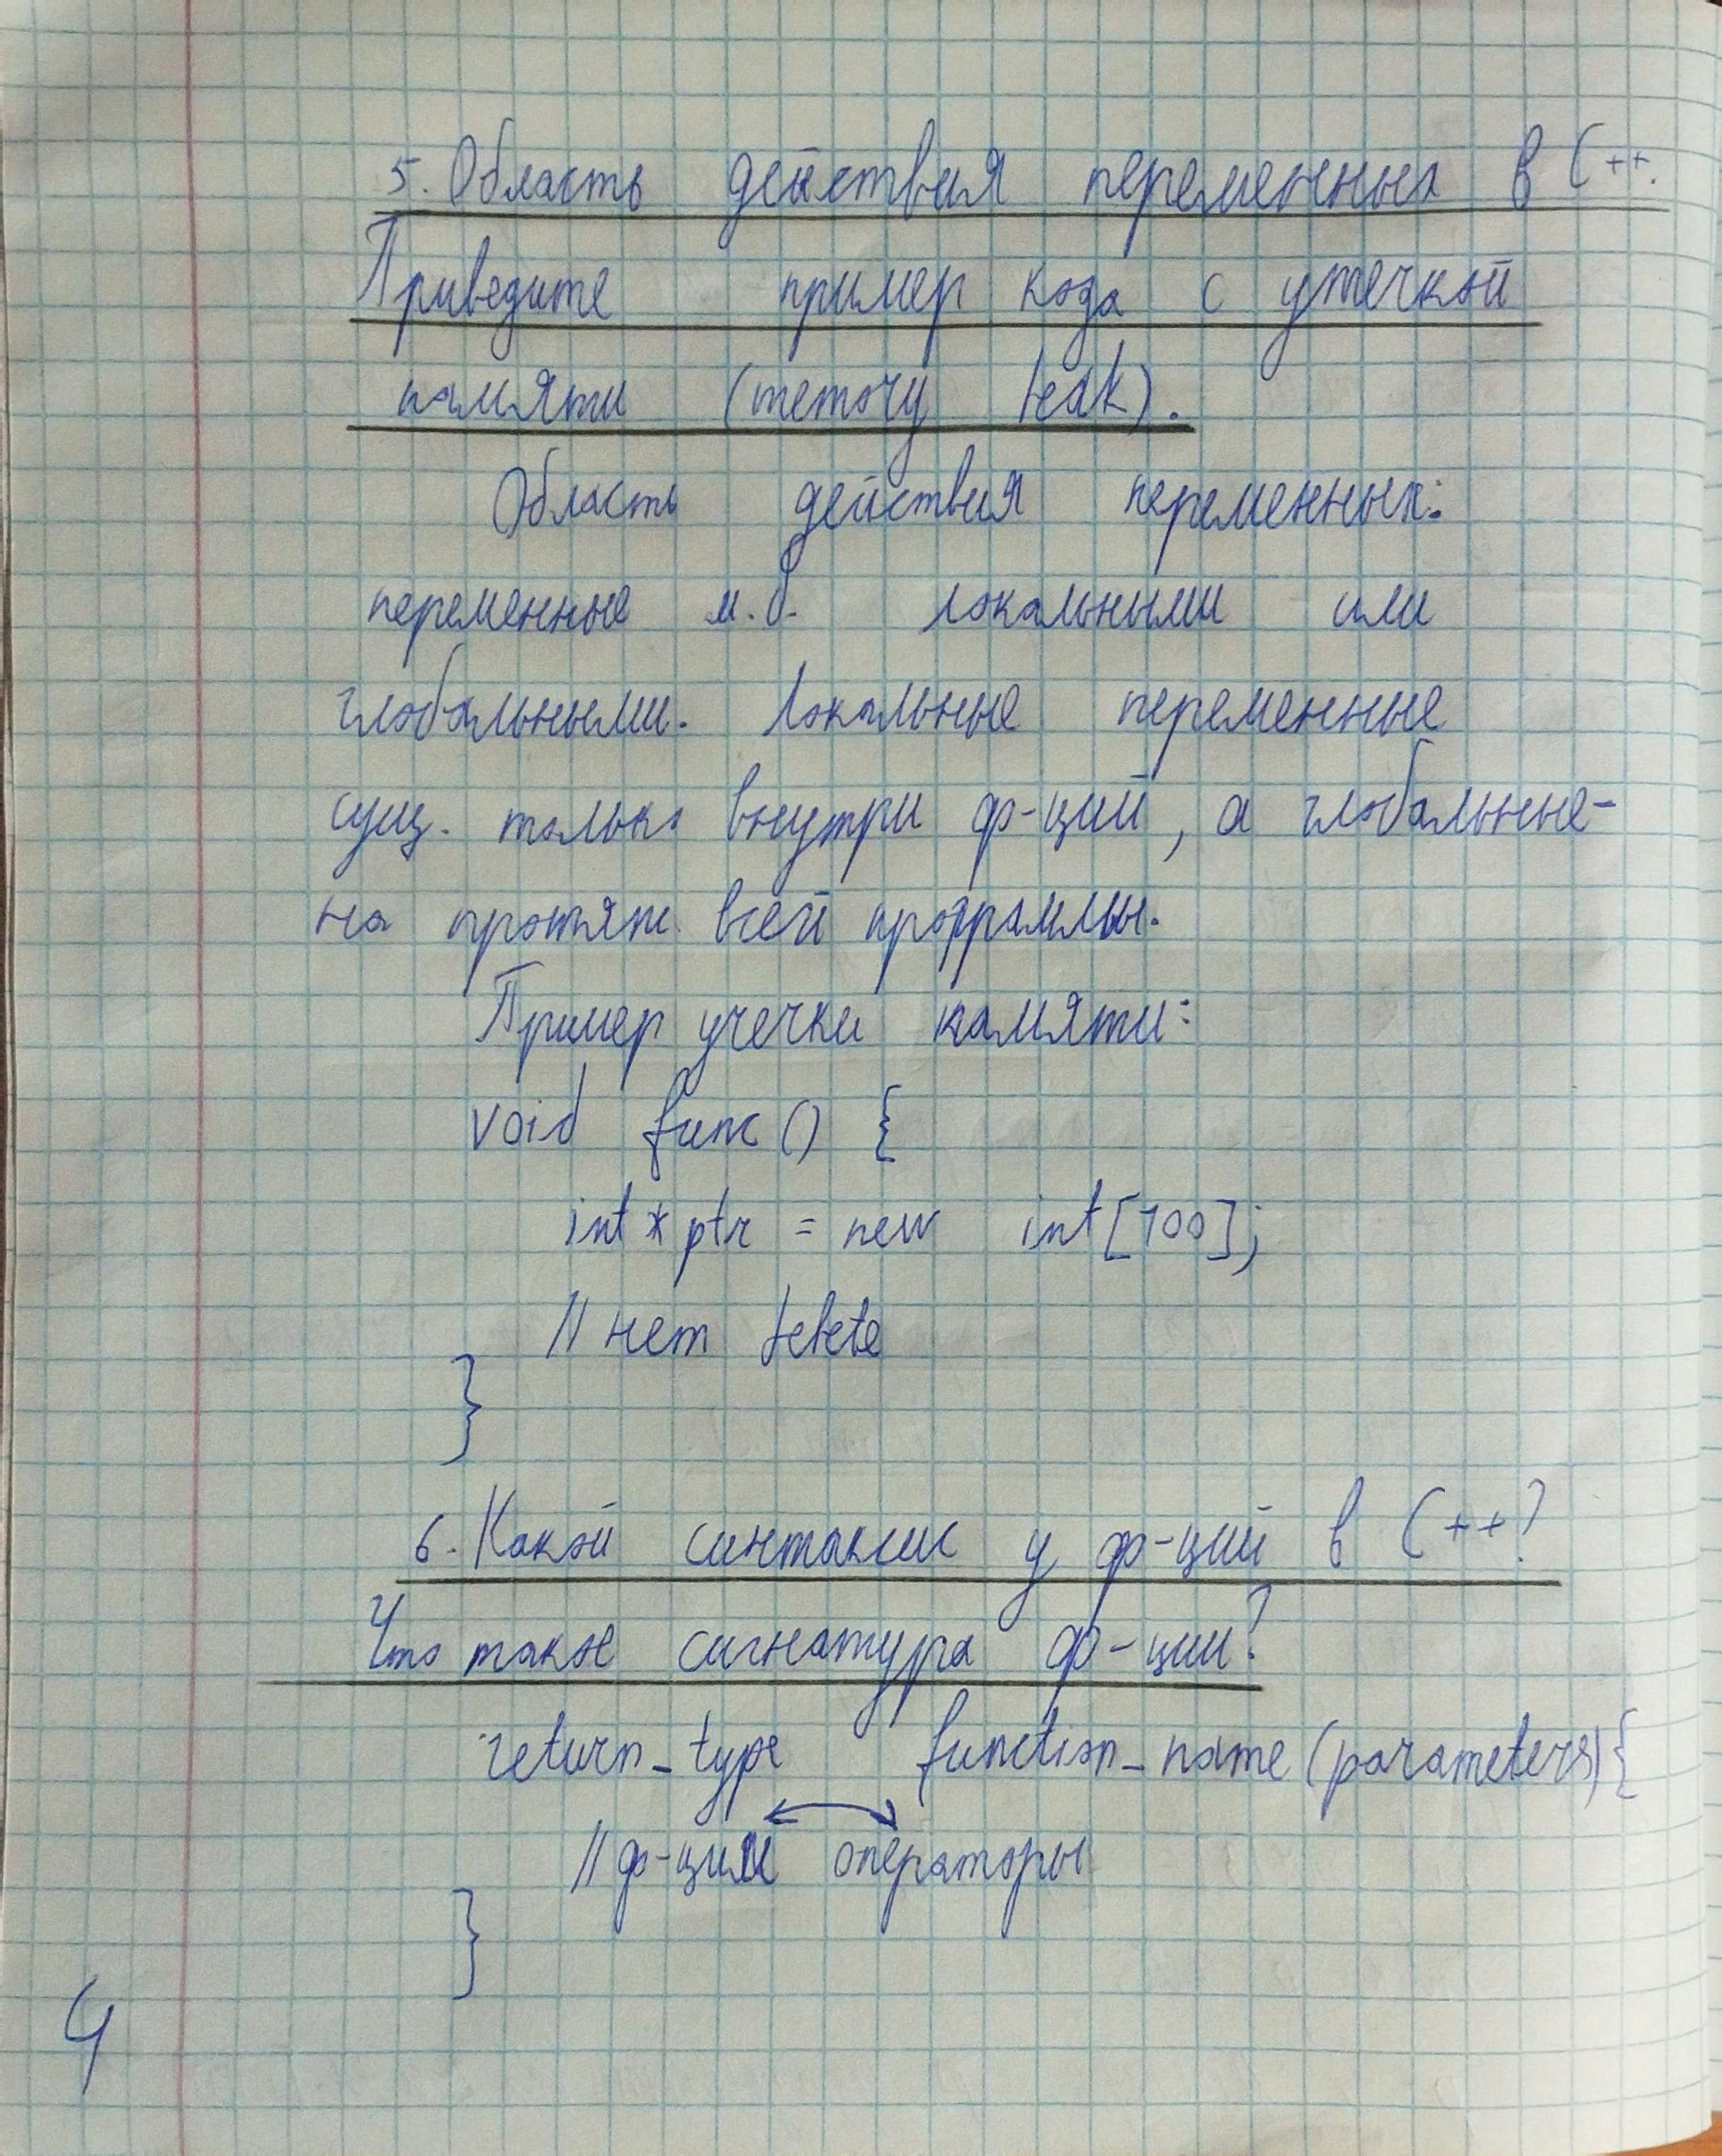 5. Область действия переменных в C++.
Приведите пример кода с утечкой
памяти (memory leak).
Область действия переменных:
переменные м.б. локальными или
глобальными. Локальные переменные
сущ. только внутри ф-ций, а глобальные-
на протяж. всей программы.
Пример учечки памяти:
void func() {
int * ptr = new int[100];
// нет delete
}
6. Какой синтаксис у ф-ций в C++?
Что такое сигнатура ф-ции?
return_type function_name (parameters) {
// ф-ции операторы
}
4